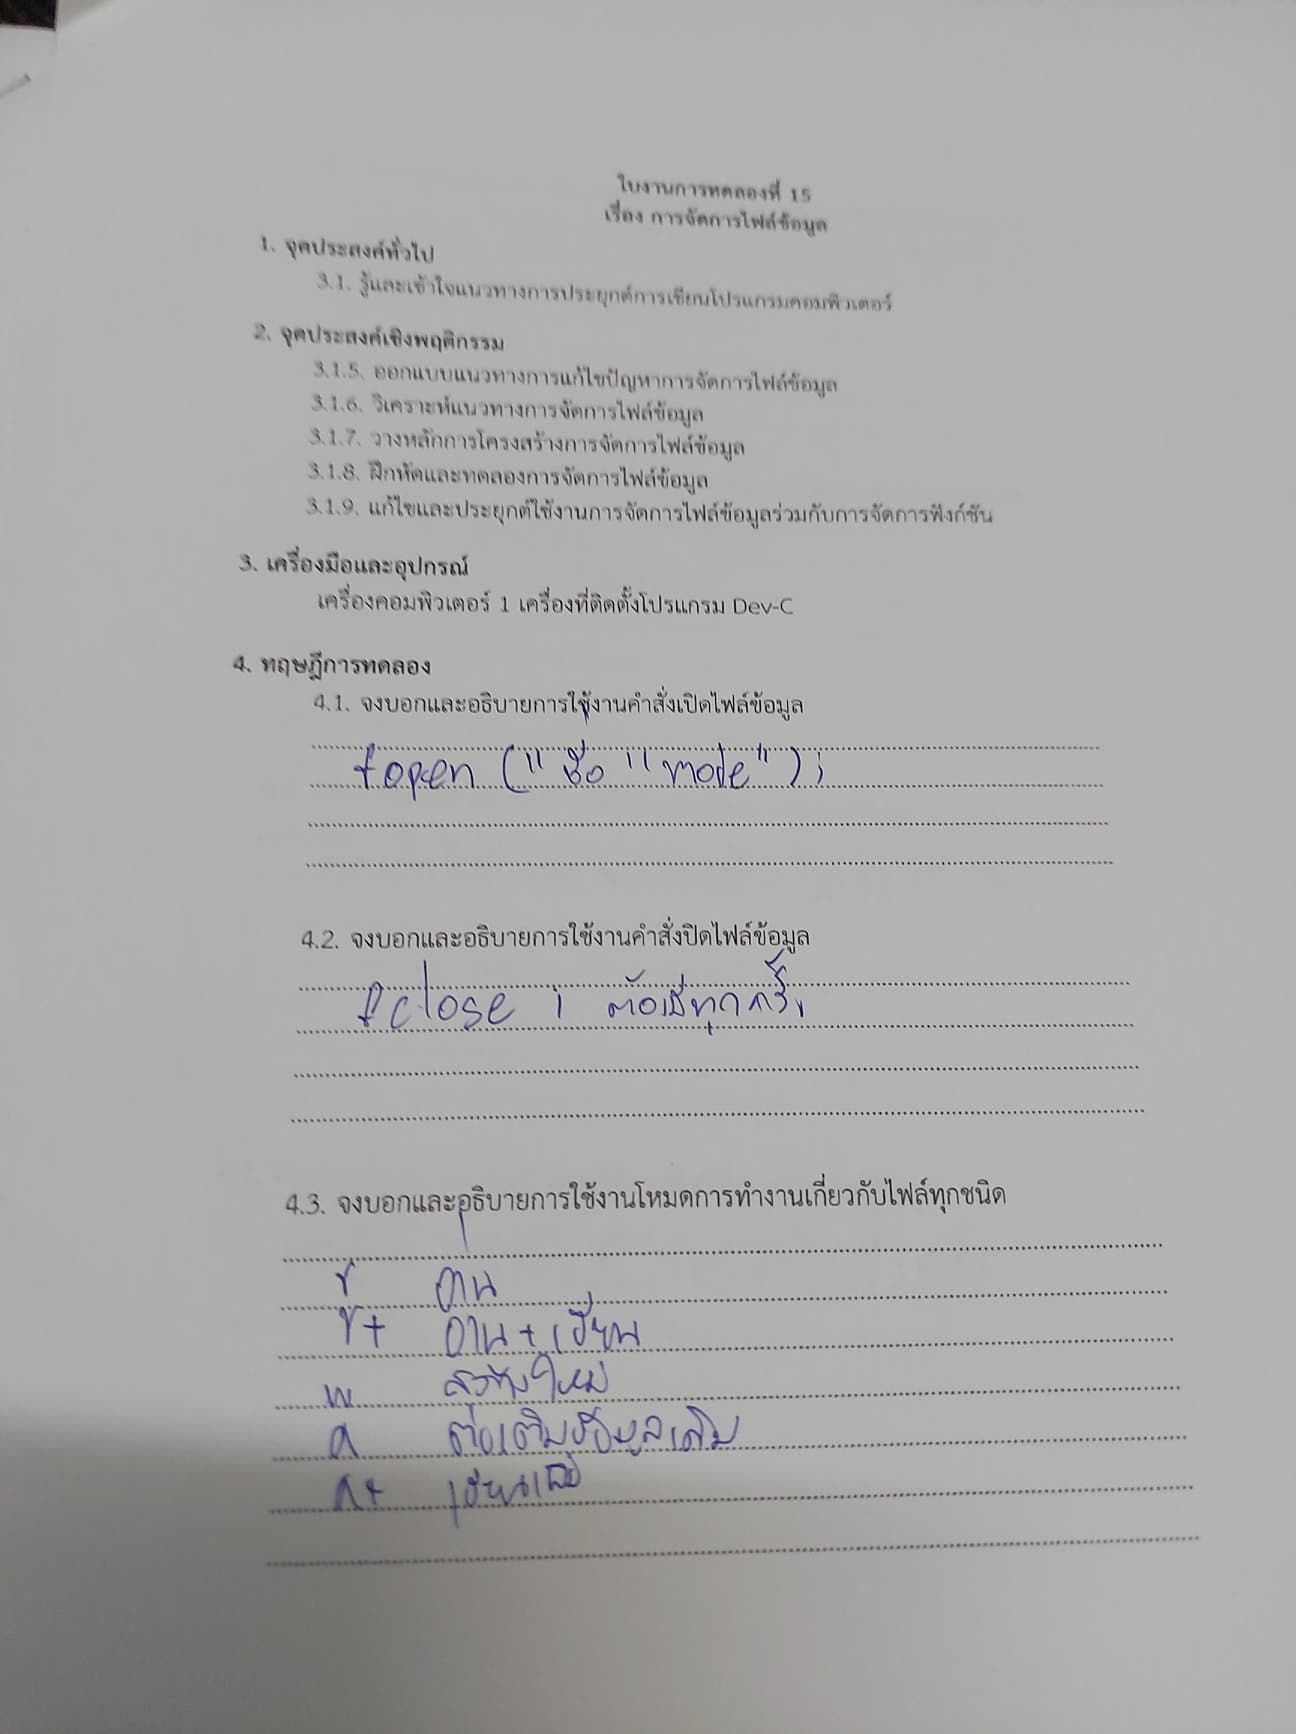 ใบงานการทดลองที่ 15
เรื่อง การจัดการไฟล์ข้อมูล
1. จุดประสงค์ทั่วไป
3.1. รู้และเข้าใจแนวทางการประยุกต์การเขียนโปรแกรมคอมพิวเตอร์
2. จุดประสงค์เชิงพฤติกรรม
3.1.5. ออกแบบแนวทางการแก้ไขปัญหาการจัดการไฟล์ข้อมูล
3.1.6. วิเคราะห์แนวทางการจัดการไฟล์ข้อมูล
3.1.7. วางหลักการโครงสร้างการจัดการไฟล์ข้อมูล
3.1.8. ฝึกหัดและทดลองการจัดการไฟล์ข้อมูล
3.1.9. แก้ไขและประยุกต์ใช้งานการจัดการไฟล์ข้อมูลร่วมกับการจัดการฟังก์ชัน
3. เครื่องมือและอุปกรณ์
เครื่องคอมพิวเตอร์ 1 เครื่องที่ติดตั้งโปรแกรม Dev-C
4. ทฤษฎีการทดลอง
4.1. จงบอกและอธิบายการใช้งานคำสั่งเปิดไฟล์ข้อมูล
fopen ("ชื่อ" "mode");
4.2. จงบอกและอธิบายการใช้งานคำสั่งปิดไฟล์ข้อมูล
fclose ; ต้องมีทุกครั้ง
4.3. จงบอกและอธิบายการใช้งานโหมดการทำงานเกี่ยวกับไฟล์ทุกชนิด
r อ่าน
r+ อ่าน+เขียน
w สร้างใหม่
a ต่อเติมข้อมูลเดิม
a+